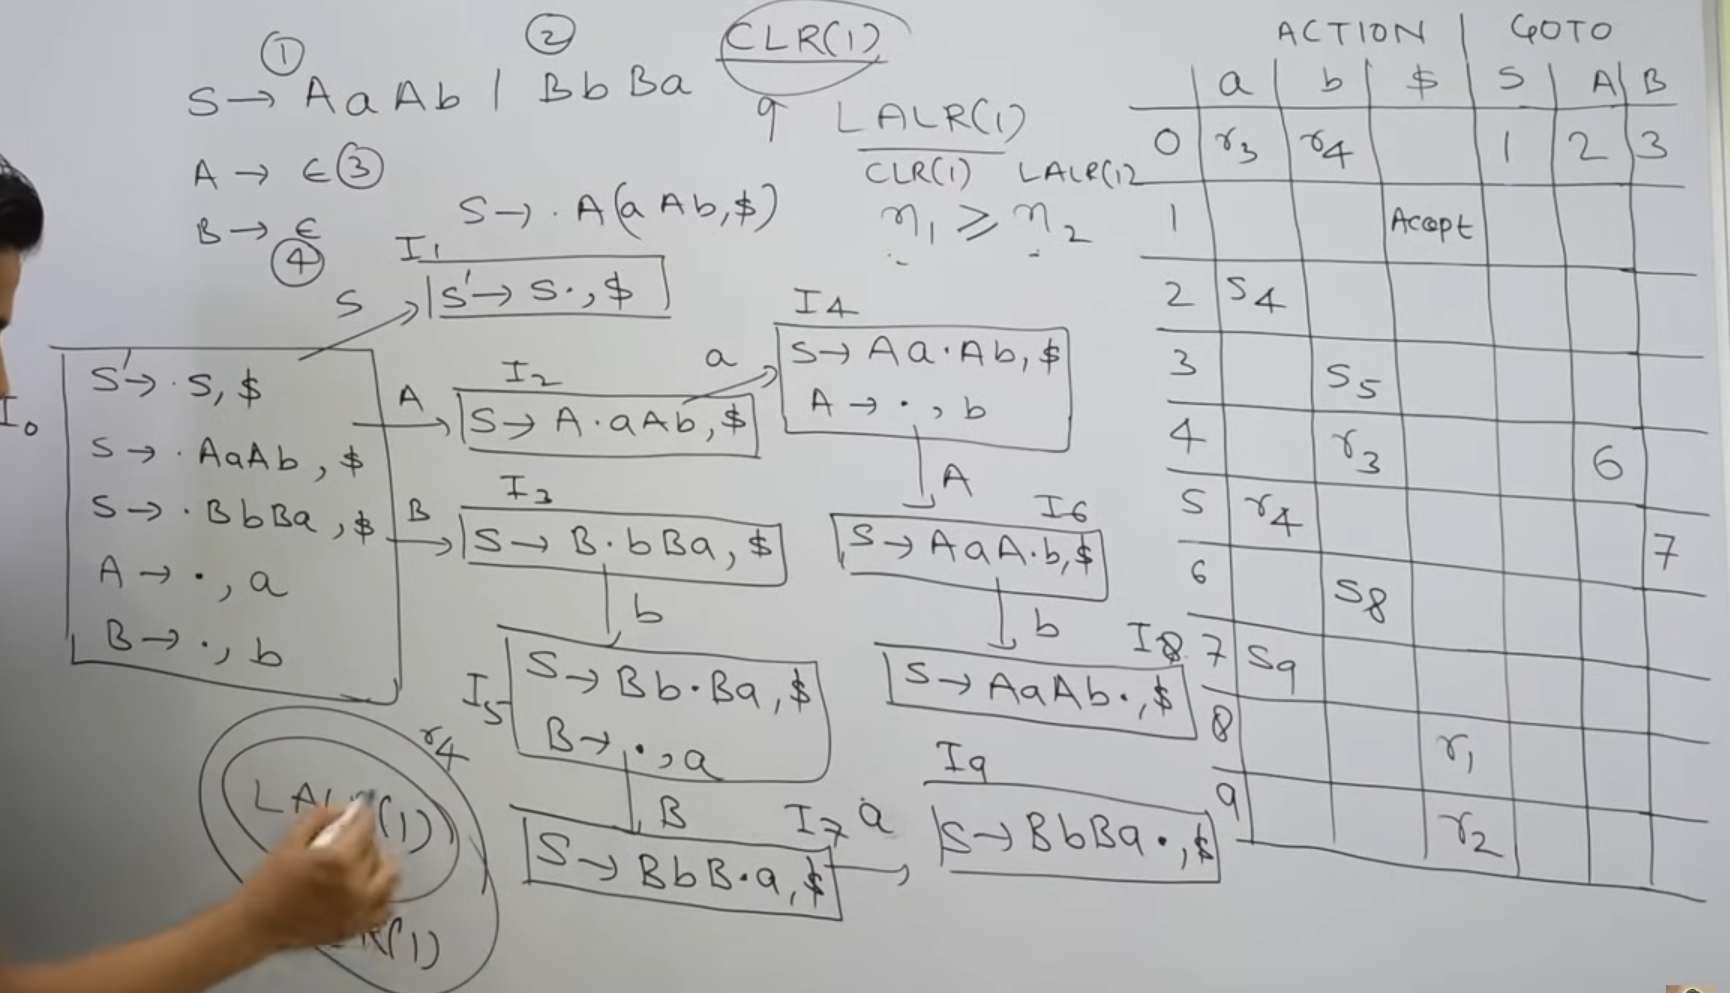 ① ②
S → AaAb | BbBa
A → ∈ ③
B → ∈
④
CLR(1)
9 LALR(1)
CLR(1) LALR(1)
n₁ ≥ n₂
S → .A(aAb,$)
I₀
S' → .S, $
S → .AaAb, $
S → .BbBa, $
A → ., a
B → ., b
S
I₁
S' → S., $
A
I₂
S → A.aAb, $
B
I₃
S → B.bBa, $
a
I4
S → Aa.Ab, $
A → ., b
A
I6
S → AaA.b, $
b
I8
S → AaAb., $
b
I5
S → Bb.Ba, $
B → ., a
B
I7
S → BbB.a, $
a
I9
S → BbBa., $
r4
(1)
R(1)
ACTION | GOTO
a b $ S A B
0 r3 r4 1 2 3
1 Accept
2 S4
3 S5
4 r3 6
5 r4 7
6 S8
7 S9
8 r1
9 r2